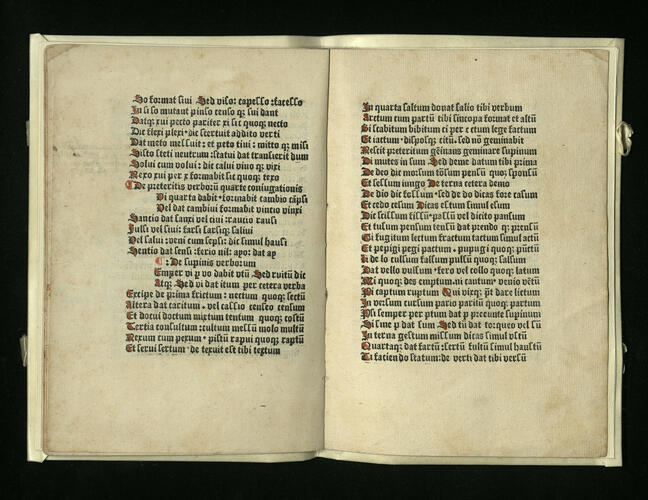 So format sivi Sed viso: capesso :facesso
In si so mutant pinso censo q̄ sui dant
Datqȝ rui pecto pariter ri sic quoqȝ necto
Dic flexi plexi · dic stertuit addito verti
Dat meto messuit : et peto tiui : mitto qȝ misi
Sisto steti neutrum : statui dat transierit dum
Solui cum volui : dic calui viuo qȝ vixi
Nexo xui per x formabit sic quoqȝ texo
De preteritis verborū quarte coniugationis
Di quarta dabit · formabit cambio cāpsi
Vel dat cambiui formabit vincio vinxi
Sancio dat sanxi vel tiui : raucio rausi
Fulsi vel siui : farsi sarsiqȝ saliui
Vel salui : veni cum sepsi : dic simul hausi
Sentio dat sensi : ferio nil : apo: dat ay
De supinis verborum
Emper vi p vo dabit vtū Sed rutū dic
Atqȝ Sed vi dat itum per cetera verba
Excipe de prima frictum : nectum quoqȝ sectū
Altera dat caritum · vel cassio censeo censum
Et docui doctum mixtum tentum quoqȝ tostū
Tertia consultum : cultum messū molo multū
Nexum cum pexum · pistū rapui quoqȝ raptū
Et serui sertum · de texuit est tibi textum
In quarta saltum donat salio tibi verbum
Arctum cum partū tibi sincopa format et altū
Si scabitum bibitum ci per c ctum lege factum
Et iactum · disposqȝ citū · sed nō geminabit
Nescit preteritum gēinans geminare supinum
Di mutes in sum Sed deme datum tibi prima
De deo dic morsum tōsum pensū quoqȝ sponsū
Et sessum iungo De terna cetera demo
De dio dic fossum · sed de do dicas fore casum
Et cedo cesum Dicas estum simul esum
Dic scissum fissū · passū vel dicito pansum
Et tusum pensum tensū dat prendo qȝ prensū
Gi fugitum lectum fractum tactum simul actū
Et pepigi pegi pactum · pupugi quoqȝ pūctū
Li de lo cussum falsum pulsū quoqȝ salsum
Dat vello vulsum · fero vel collo quoqȝ latum
Mi quoqȝ des emptum · ni cantum · venio vētū
Pi captum ruptum Qui vicqȝ pōt dare lictum
In vorsum cursum pario partū quoqȝ partum
Psi semper per ptum dat p precunte supinum
Si sine p dat sum Sed tū dat torqueo vel sū
In terna gestum missum dicas simul vstū
Quartaqȝ dat fartū :sertū fultū simul haustū
Ti faciendo statum : de verti dat tibi versū